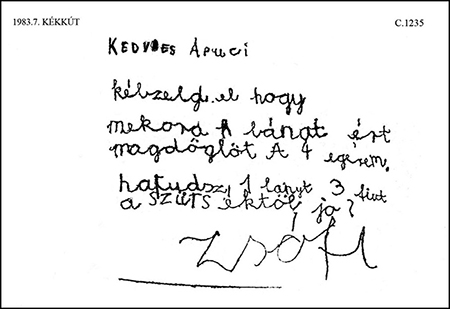 1983.7. KÉKKÚT
C.1235
KEDVES ÁPUCI
kébzeld el hogy
mekora bánat ért
magdöglöt A 4 egérem.
hatudsz, 1 lányt 3 fiut
a SZÜTS éktöl, jó?
ZSÓFI